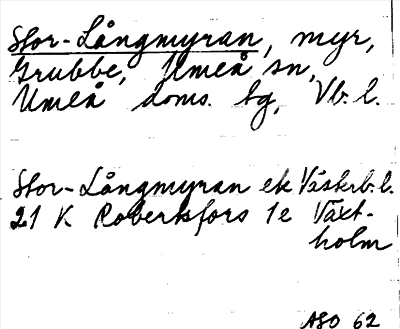 Stor-Långmyran, myr,
Grubbe, Umeå sn,
Umeå doms. bg, Vb. l.
Stor-Långmyran ek Västerb. l.
21 K Robertsfors 1e Växt-
holm
ASO 62